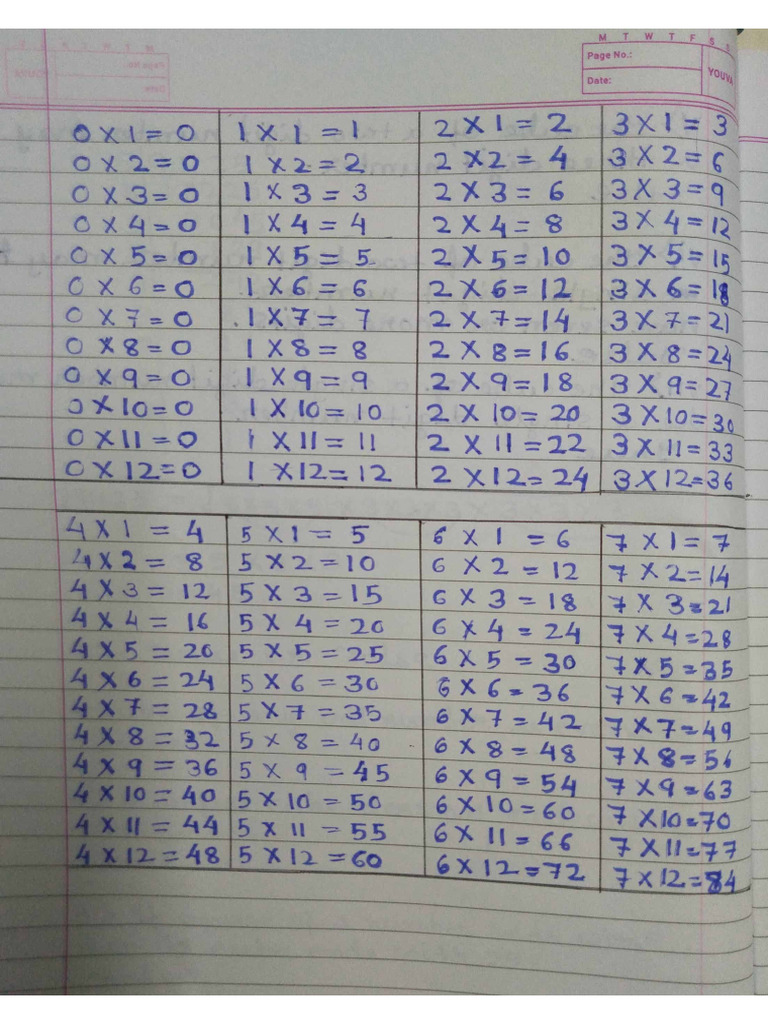 M T W T F S S
Page No.:
Date:
YOUVA
0 X 1 = 0
0 X 2 = 0
0 X 3 = 0
0 X 4 = 0
0 X 5 = 0
0 X 6 = 0
0 X 7 = 0
0 X 8 = 0
0 X 9 = 0
0 X 10 = 0
0 X 11 = 0
0 X 12 = 0
1 X 1 = 1
1 X 2 = 2
1 X 3 = 3
1 X 4 = 4
1 X 5 = 5
1 X 6 = 6
1 X 7 = 7
1 X 8 = 8
1 X 9 = 9
1 X 10 = 10
1 X 11 = 11
1 X 12 = 12
2 X 1 = 2
2 X 2 = 4
2 X 3 = 6
2 X 4 = 8
2 X 5 = 10
2 X 6 = 12
2 X 7 = 14
2 X 8 = 16
2 X 9 = 18
2 X 10 = 20
2 X 11 = 22
2 X 12 = 24
3 X 1 = 3
3 X 2 = 6
3 X 3 = 9
3 X 4 = 12
3 X 5 = 15
3 X 6 = 18
3 X 7 = 21
3 X 8 = 24
3 X 9 = 27
3 X 10 = 30
3 X 11 = 33
3 X 12 = 36
4 X 1 = 4
4 X 2 = 8
4 X 3 = 12
4 X 4 = 16
4 X 5 = 20
4 X 6 = 24
4 X 7 = 28
4 X 8 = 32
4 X 9 = 36
4 X 10 = 40
4 X 11 = 44
4 X 12 = 48
5 X 1 = 5
5 X 2 = 10
5 X 3 = 15
5 X 4 = 20
5 X 5 = 25
5 X 6 = 30
5 X 7 = 35
5 X 8 = 40
5 X 9 = 45
5 X 10 = 50
5 X 11 = 55
5 X 12 = 60
6 X 1 = 6
6 X 2 = 12
6 X 3 = 18
6 X 4 = 24
6 X 5 = 30
6 X 6 = 36
6 X 7 = 42
6 X 8 = 48
6 X 9 = 54
6 X 10 = 60
6 X 11 = 66
6 X 12 = 72
7 X 1 = 7
7 X 2 = 14
7 X 3 = 21
7 X 4 = 28
7 X 5 = 35
7 X 6 = 42
7 X 7 = 49
7 X 8 = 56
7 X 9 = 63
7 X 10 = 70
7 X 11 = 77
7 X 12 = 84